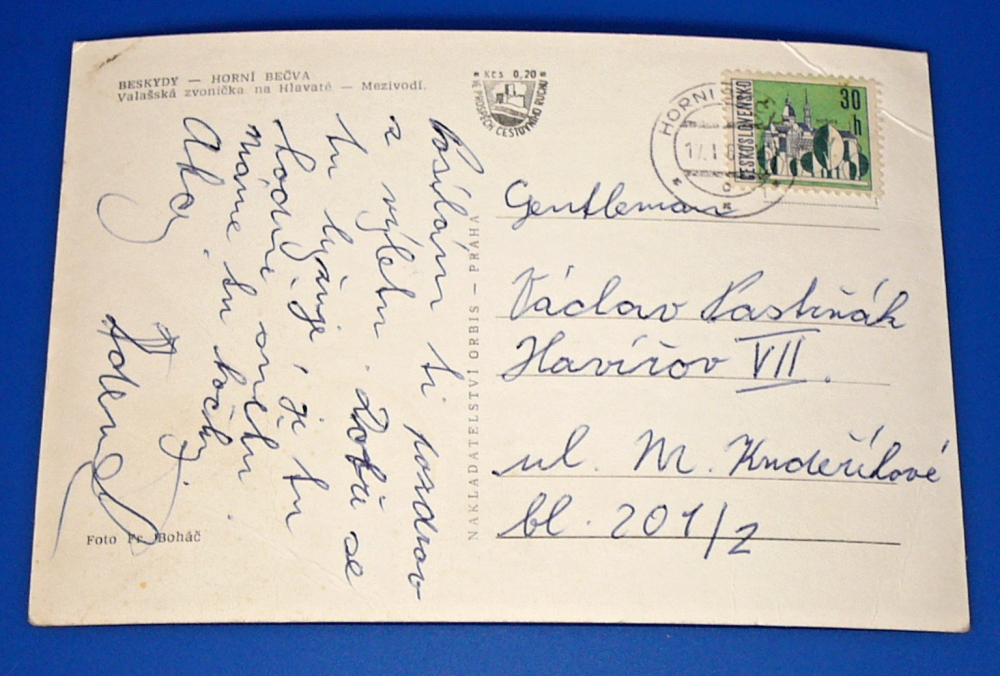 BESKYDY — HORNÍ BEČVA
Valašská zvonička na Hlavaté — Mezivodí.
* Kčs 0,20 *
VE PROSPĚCH CESTOVNÍHO RUCHU
HORNÍ
17.
ČESKOSLOVENSKO
30
h
Posílám ti pozdrav
z výletu. Dobře se
tu lyžuje, je tu
hodně sněhu
máme tu kočky
Ahoj
Zdeněk
NAKLADATELSTVÍ ORBIS — PRAHA
Gentleman
Václav Pastrňák
Havířov VII.
ul. M. Kudeříkové
bl. 201/2
Foto Fr. Boháč